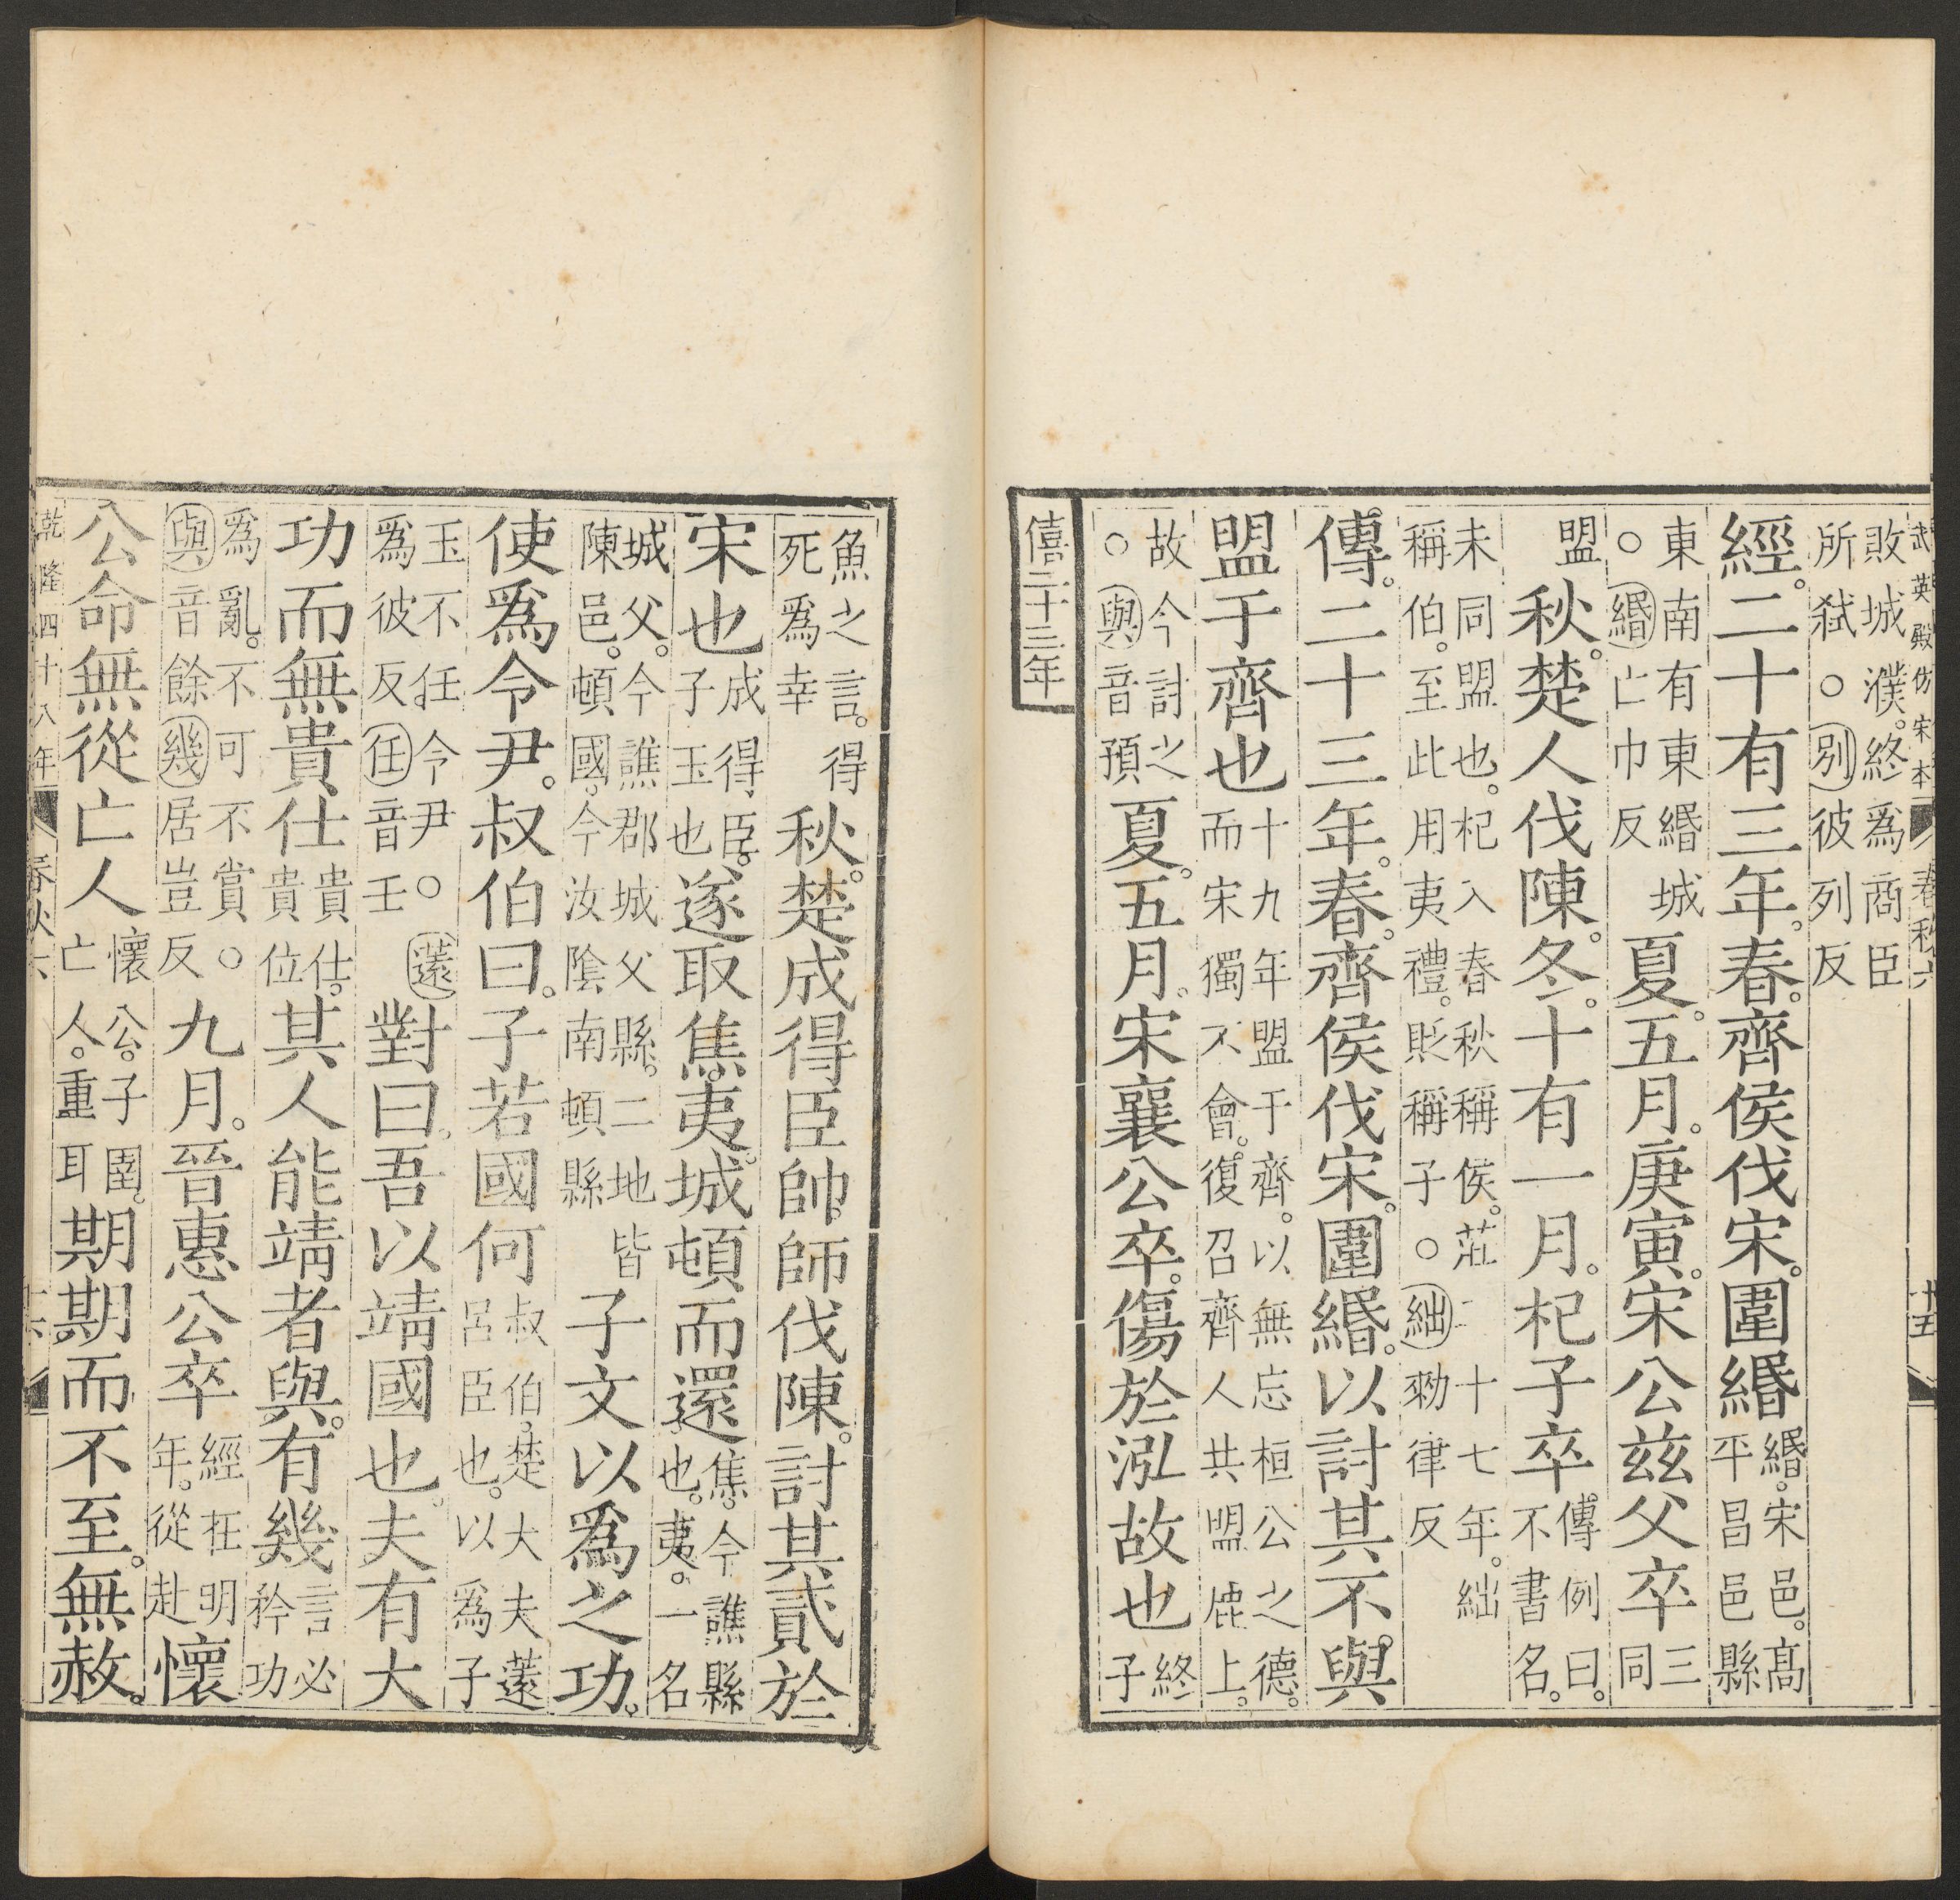 武英殿仿宋本 春秋六 十五
敗城濮。終爲商臣
所弑 ○別彼列反
經。二十有三年。春。齊侯伐宋。圍緡 緡。宋邑。高
平昌邑縣
東南有東緡城
○緡亡巾反 夏。五月。庚寅。宋公茲父卒 三
同
盟 秋。楚人伐陳。冬。十有一月。杞子卒 傳例曰。
不書名。
未同盟也。杞入春秋稱侯。莊二十七年。絀
稱伯。至此用夷禮。貶稱子 ○絀勑律反
傳。二十三年。春。齊侯伐宋。圍緡。以討其不與
盟于齊也 十九年盟于齊。以無忘桓公之德。
而宋獨不會。復召齊人共盟鹿上。
故今討之
○與音預 夏。五月。宋襄公卒。傷於泓故也 終
子
僖二十三年
魚之言。得
死爲幸 秋。楚成得臣帥師伐陳。討其貳於
宋也 成得臣。
子玉也 遂取焦。夷。城頓而還 焦。今譙縣
也。夷。一名
城父。今譙郡城父縣。二地皆
陳邑。頓國。今汝陰南頓縣 子文以爲之功。
使爲令尹。叔伯曰。子若國何 叔伯。楚大夫薳
呂臣也。以爲子
玉不任令尹。○薳
爲彼反任音壬 對曰。吾以靖國也。夫有大
功而無貴仕 貴仕。
貴位 其人能靖者與。有幾 言必
矜功
爲亂。不可不賞。○
與音餘幾居豈反 九月。晉惠公卒 經在明
年。從赴 懷
公命無從亡人 懷公。子圉。
亡人。重耳 期期而不至。無赦。
乾隆四十八年 春秋六 十六